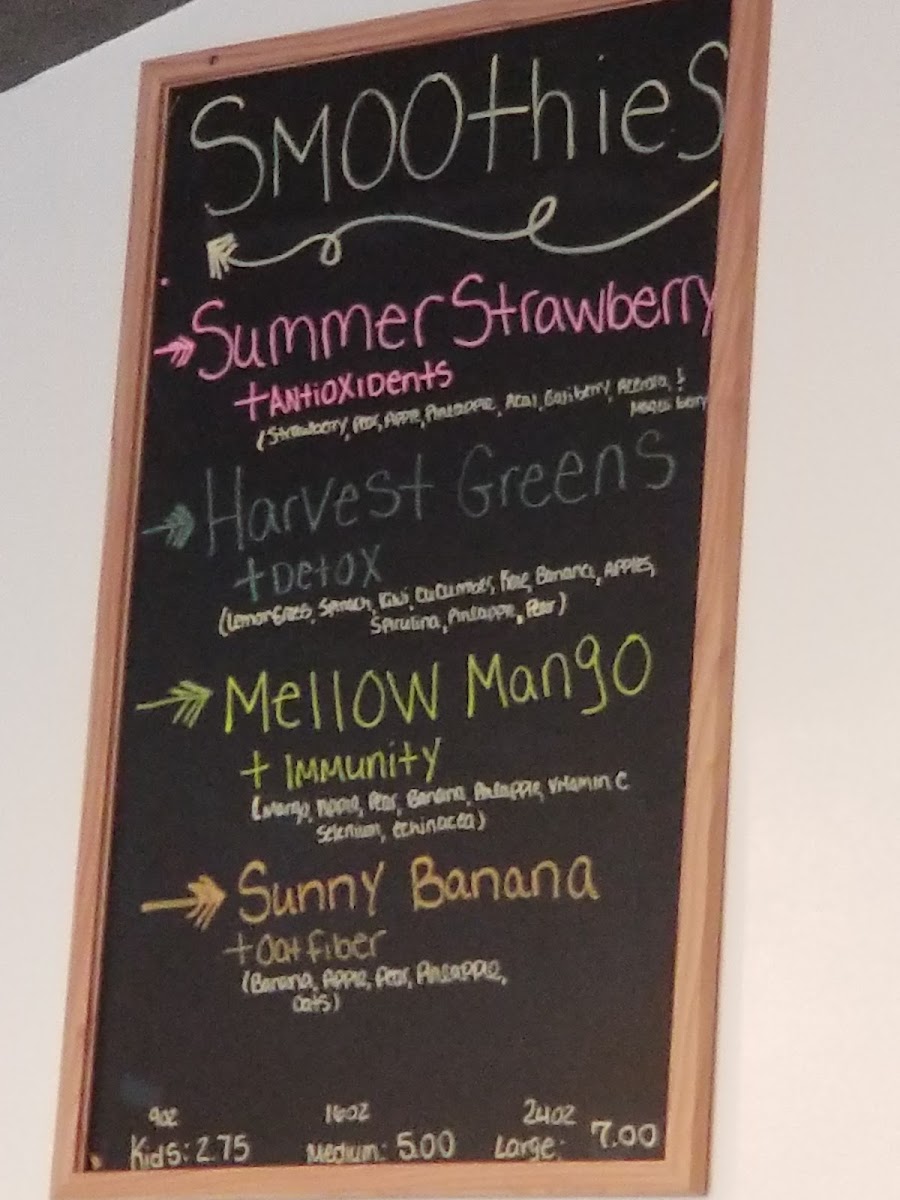 SMOOthieS
Summer Strawberry
+ Antioxidents
(Strawberry, Pear, Apple, Pineapple, Acai, Gojiberry, Acerola, &
Maqui berry
Harvest Greens
+ Detox
(Lemongrass, Spinach, Kiwi, Cucumber, Kale, Banana, Apples,
Spirulina, Pineapple, Pear)
Mellow Mango
+ Immunity
(Mango, Pear, Banana, Pineapple, Vitamin C
Selenium, Echinacea)
Sunny Banana
+ Oat fiber
(Banana, Apple, Pear, Pineapple,
Oats)
9oz 16oz 24oz
Kids: 2.75 Medium: 5.00 Large: 7.00